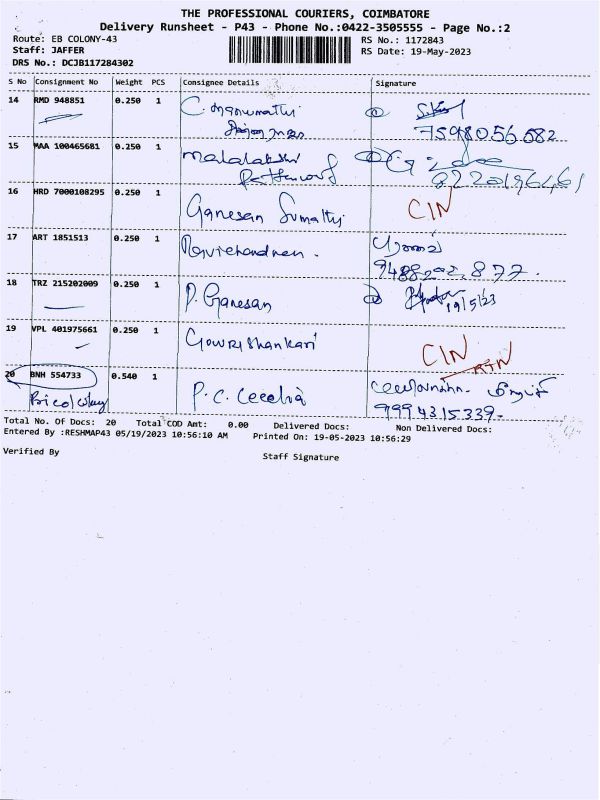 THE PROFESSIONAL COURIERS, COIMBATORE
Delivery Runsheet - P43 - Phone No.:0422-3505555 - Page No.:2
Route: EB COLONY-43
RS No.: 1172843
Staff: JAFFER
RS Date: 19-May-2023
DRS No.: DCJB117284302
S No Consignment No Weight PCS Consignee Details Signature
14 RMD 948851 0.250 1
7598056682
15 MAA 100465681 0.250 1
8220196461
16 HRD 7000108295 0.250 1 Ganesan Sumathi CIN
17 ART 1851513 0.250 1
9488202877.
18 TRZ 215202009 0.250 1 P. Ganesan
19/5/23
19 VPL 401975661 0.250 1 Gowri Shankari CIN RTN
20 BNH 554733 0.540 1 P. C. Cecelia
9994315339.
Total No. Of Docs: 20 Total COD Amt: 0.00 Delivered Docs: Non Delivered Docs:
Entered By :RESHMAP43 05/19/2023 10:56:10 AM Printed On: 19-05-2023 10:56:29
Verified By
Staff Signature